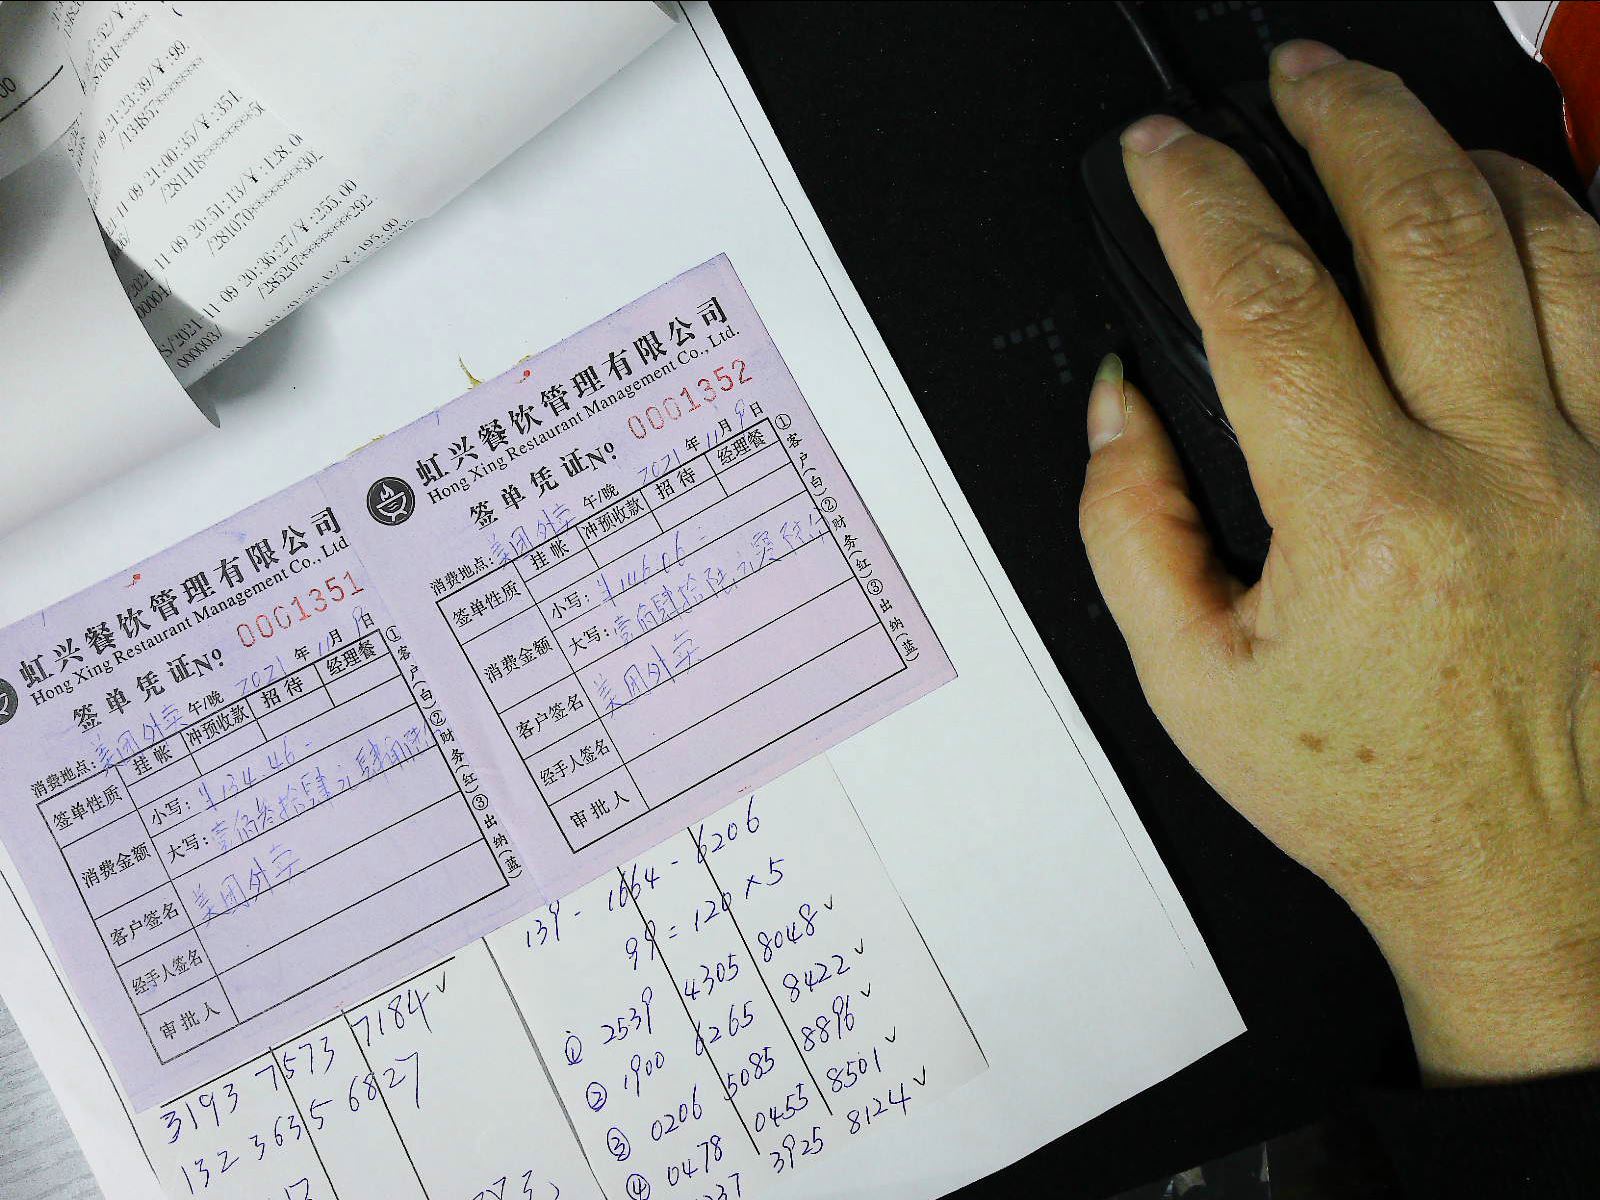 00
21:23:39/￥:99.
/13485********
09 21:00:35/￥:351.
/281418********5
11-09 20:51:13/￥:128.0
/281070********30.
2021-11-09 20:36:27/￥:255.00
00004/ /285207********292.
S/2021-11-09
000003/
虹兴餐饮管理有限公司
Hong Xing Restaurant Management Co., Ltd
签单凭证 No 0001351
消费地点: 美团外卖 午/晚 2021 年 11 月 9 日
签单性质 挂帐 冲预收款 招待 经理餐
消费金额 小写: ¥134.46-
大写: 壹佰叁拾肆元肆角陆
客户签名 美团外卖
经手人签名
审批人
①客户(白)②财务(红)③出纳(蓝)
虹兴餐饮管理有限公司
Hong Xing Restaurant Management Co., Ltd.
签单凭证 No 0001352
消费地点: 美团外卖 午/晚 2021 年 11 月 9 日
签单性质 挂帐 冲预收款 招待 经理餐
消费金额 小写: ¥146.06-
大写: 壹佰肆拾陆元零陆分
客户签名 美团外卖
经手人签名
审批人
①客户(白)②财务(红)③出纳(蓝)
3193 7573 7184 ✓
132 3635 6827
139 - 1664 - 6206
99 = 120 × 5
① 2539 4305 8048 ✓
② 1900 6265 8422 ✓
③ 0206 5085 8896 ✓
④ 0478 0455 8501 ✓
237 3925 8124 ✓